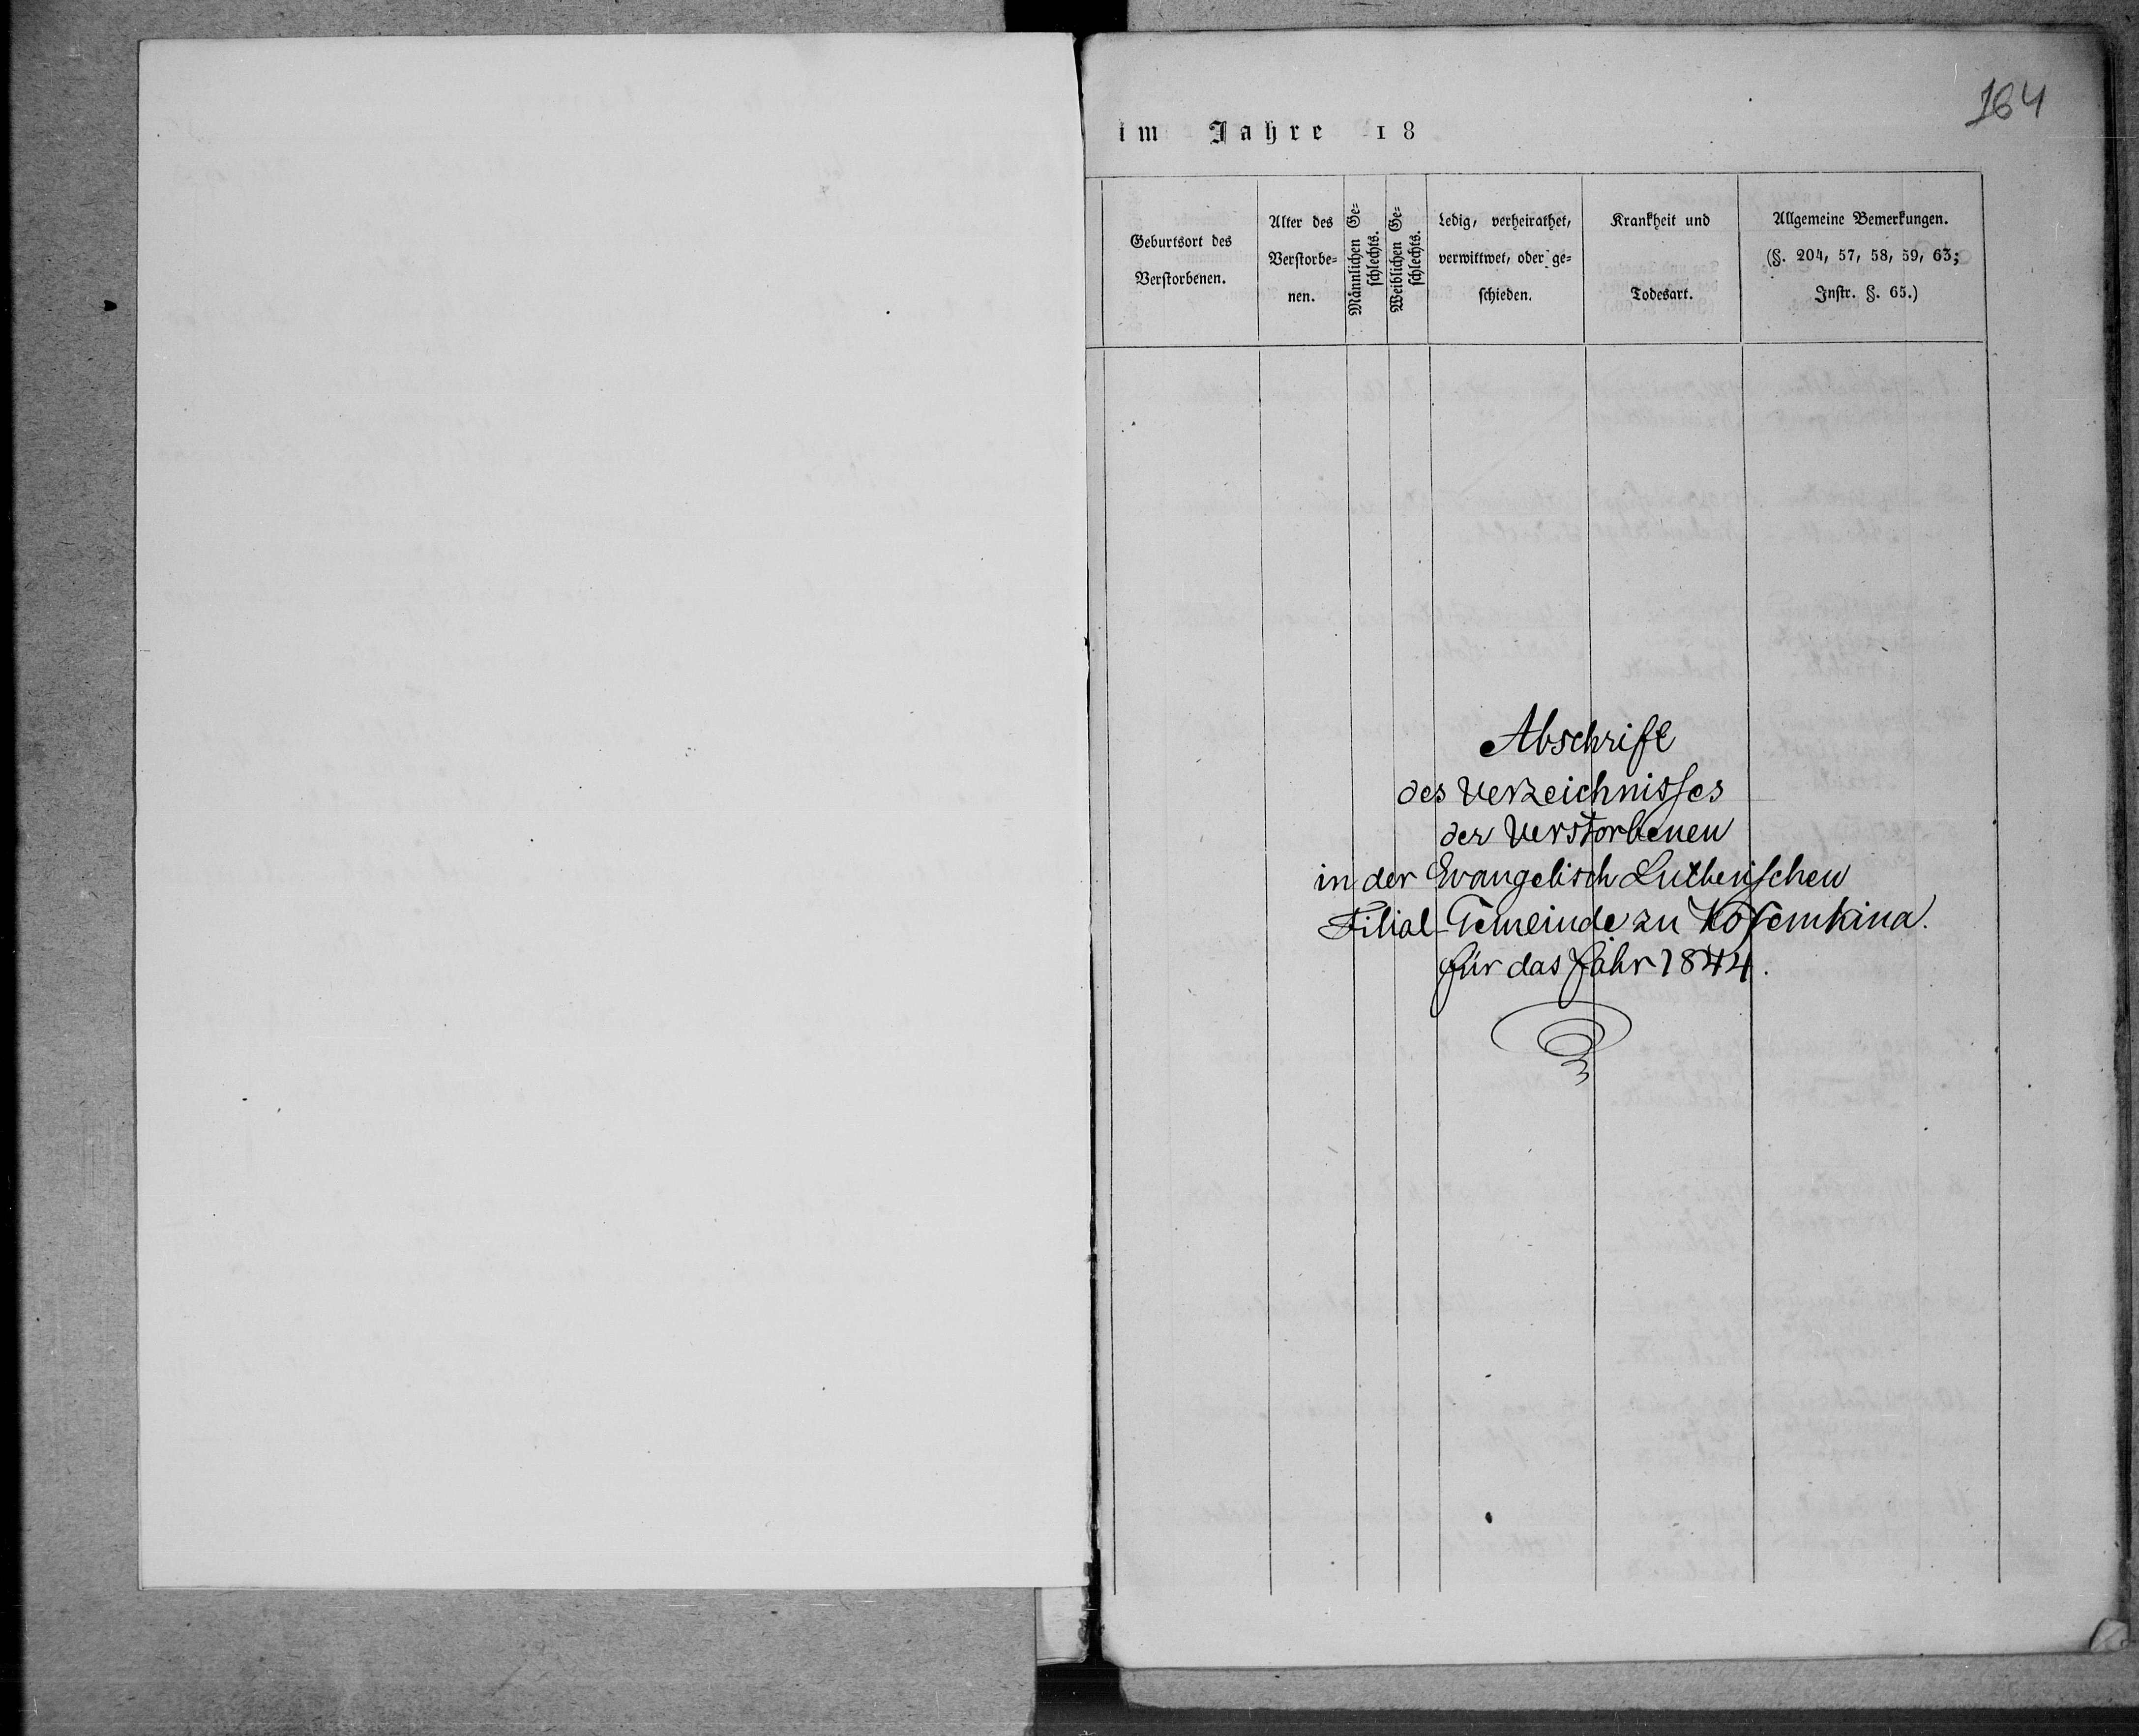 164
im Jahre 18
Geburtsort des
Verstorbenen.
Alter des
Verstorbe-
nen.
Männlichen Ge-
schlechts.
Weiblichen Ge-
schlechts.
Ledig, verheirathet,
verwittwet, oder ge-
schieden.
Krankheit und
Todesart.
Allgemeine Bemerkungen.
(§. 204, 57, 58, 59, 63;
Instr. §. 65.)
Abschrift
des Verzeichnisses
der Verstorbenen
in der Evangelisch Lutherischen
Filial-Gemeinde zu Kosemkina.
für das Jahr 1844.